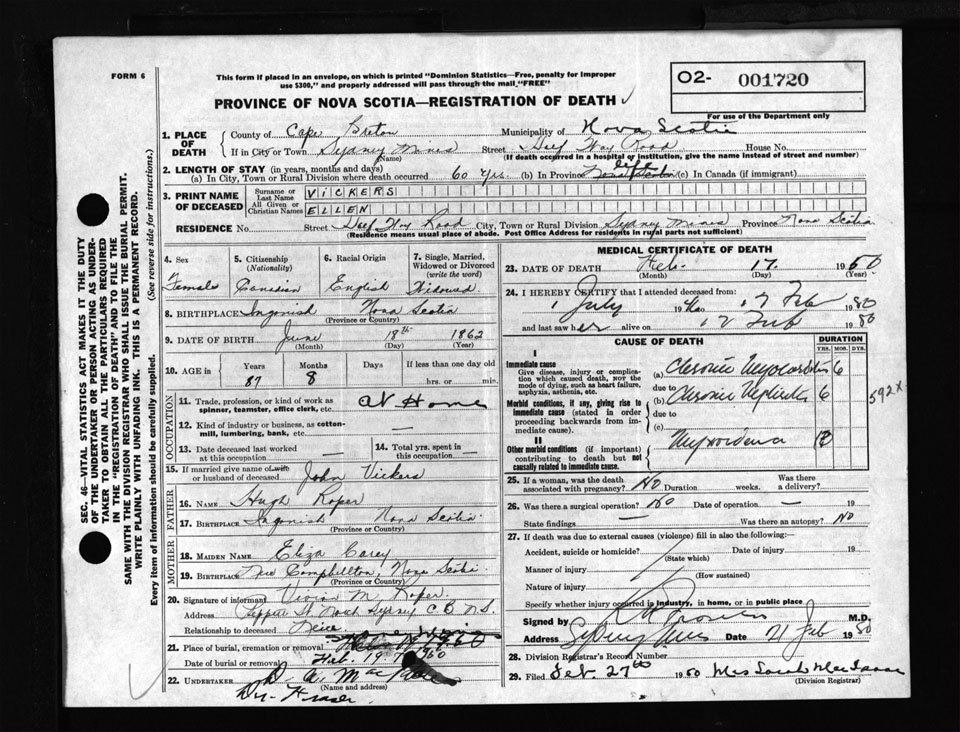 FORM 6
This form if placed in an envelope, on which is printed "Dominion Statistics—Free, penalty for improper
use $300," and properly addressed will pass through the mail "FREE"
O2- 001720
For use of the Department only
PROVINCE OF NOVA SCOTIA—REGISTRATION OF DEATH
1. PLACE OF DEATH
County of Cape Breton Municipality of Nova Scotia
If in City or Town Sydney Mines Street Road House No.
(Name) (If death occurred in a hospital or institution, give the name instead of street and number)
2. LENGTH OF STAY (in years, months and days)
(a) In City, Town or Rural Division where death occurred 60 yrs. (b) In Province life Nova Scotia (c) In Canada (if immigrant)
3. PRINT NAME OF DECEASED
Surname or Last Name VICKERS
All Given or Christian Names ELLEN
RESIDENCE No. Street Road City, Town or Rural Division Sydney Mines Province Nova Scotia
(Residence means usual place of abode. Post Office Address for residents in rural parts not sufficient)
4. Sex Female
5. Citizenship (Nationality) Canadian
6. Racial Origin English
7. Single, Married, Widowed or Divorced (write the word) Widowed
8. BIRTHPLACE Ingonish Nova Scotia
(Province or Country)
9. DATE OF BIRTH June 18th 1862
(Month) (Day) (Year)
10. AGE in Years Months Days If less than one day old
87 8 hrs. or min.
OCCUPATION
11. Trade, profession, or kind of work as spinner, teamster, office clerk, etc. At Home
12. Kind of industry or business, as cotton-mill, lumbering, bank, etc. —
13. Date deceased last worked at this occupation —
14. Total yrs. spent in this occupation —
15. If married give name of wife or husband of deceased John Vickers
FATHER
16. NAME Hugh Roper
17. BIRTHPLACE Ingonish Nova Scotia
(Province or Country)
MOTHER
18. MAIDEN NAME Eliza Carey
19. BIRTHPLACE New Campbellton, Nova Scotia
(Province or Country)
20. Signature of informant Vivian M. Roper
Address St. North Sydney C.B. N.S.
Relationship to deceased Neice
21. Place of burial, cremation or removal
Date of burial or removal Feb. 19th 1950
22. UNDERTAKER D. A.
(Name and address)
MEDICAL CERTIFICATE OF DEATH
23. DATE OF DEATH Feb. 17 1950
(Month) (Day) (Year)
24. I HEREBY CERTIFY that I attended deceased from:
1 July 17 Feb 1950
and last saw her alive on 12 Feb 1950
CAUSE OF DEATH
DURATION
YRS. MOS. DYS.
I
Immediate cause
Give disease, injury or complication which caused death, NOT the mode of dying, such as heart failure, asphyxia, asthenia, etc.
(a) Chronic 6
due to
Morbid conditions, if any, giving rise to immediate cause (stated in order proceeding backwards from immediate cause).
(b) Chronic Nephritis 6
due to
(c)
592 x
II
Other morbid conditions (if important) contributing to death but not causally related to immediate cause.
Myxoedema
25. If a woman, was the death associated with pregnancy? No Duration weeks. Was there a delivery?
26. Was there a surgical operation? No Date of operation — 19
State findings — Was there an autopsy? No
27. If death was due to external causes (violence) fill in also the following:
Accident, suicide or homicide? Date of injury 19
(State which)
Manner of injury
(How sustained)
Nature of injury
Specify whether injury occurred in industry, in home, or in public place
Signed by M.D.
Address Sydney Mines Date 21 Feb 1950
28. Division Registrar's Record Number
29. Filed Feb. 27th 1950 Mrs Sarah MacIsaac
(Division Registrar)
SEC. 46—VITAL STATISTICS ACT MAKES IT THE DUTY
OF THE UNDERTAKER OR PERSON ACTING AS UNDER-
TAKER TO OBTAIN ALL THE PARTICULARS REQUIRED
IN THE "REGISTRATION OF DEATH" AND TO FILE THE
SAME WITH THE DIVISION REGISTRAR WHO SHALL ISSUE THE BURIAL PERMIT.
WRITE PLAINLY WITH UNFADING INK. THIS IS A PERMANENT RECORD.
Every item of information should be carefully supplied. (See reverse side for instructions.)